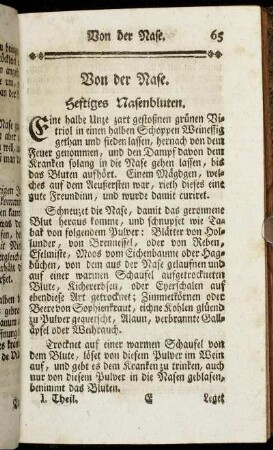 Von der Nase. 65
Von der Nase.
Heftiges Nasenbluten.
Eine halbe Unze zart gestoßnen grünen Vi-
triol in einen halben Schoppen Weinessig
gethan und sieden lassen, hernach von dem
Feuer genommen, und den Dampf davon dem
Kranken solang in die Nase gehen lassen, bis
das Bluten aufhört. Einem Mägdgen, wel-
ches auf dem Aeußersten war, rieth dieses eine
gute Freundinn, und wurde damit curiret.
Schneuzet die Nase, damit das geronnene
Blut heraus komme, und schnupft wie Ta-
bak von folgendem Pulver: Blätter von Hol-
lunder, von Brennessel, oder von Reben,
Eselmiste, Moos vom Eichenbaume oder Hag-
büchen, von dem aus der Nase gelaufnen und
auf einer warmen Schaufel aufgetrockneten
Blute, Kichererbsen, oder Eyerschalen auf
ebendiese Art getrocknet; Zimmetkörnen oder
Beere von Sophienkraut, eichne Kohlen glüend
zu Pulver gequetscht, Alaun, verbrannte Gall-
äpfel oder Weihrauch.
Trocknet auf einer warmen Schaufel von
dem Blute, löset von diesem Pulver im Wein
auf, und gebt es dem Kranken zu trinken, auch
nur von diesem Pulver in die Nasen geblasen,
benimmt das Bluten.
I. Theil. E Leget